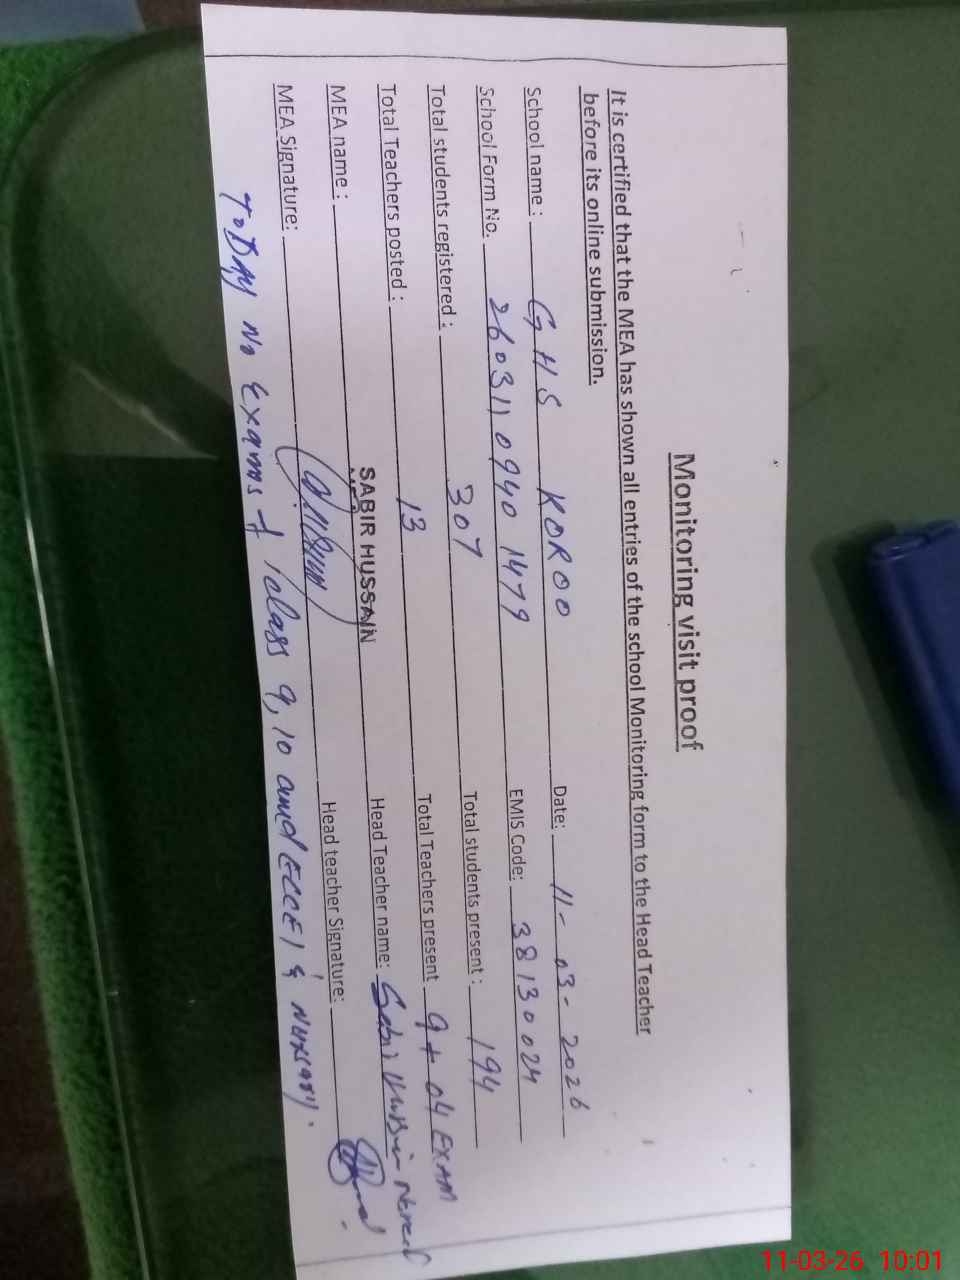 Monitoring visit proof
It is certified that the MEA has shown all entries of the school Monitoring form to the Head Teacher
before its online submission.
School name : GHS KOROO Date: 11-03-2026
School Form No. 260311 0940 1479 EMIS Code: 38130024
Total students registered : 307 Total students present : 194
Total Teachers posted : 13 Total Teachers present 9 + 04 EXAM
MEA name : SABIR HUSSAIN Head Teacher name: Sabir Hussain
MEA Signature: Head teacher Signature:
TODAY No Exams of class 9, 10 and ECCE 1 & Nursery.
11-03-26 10:01